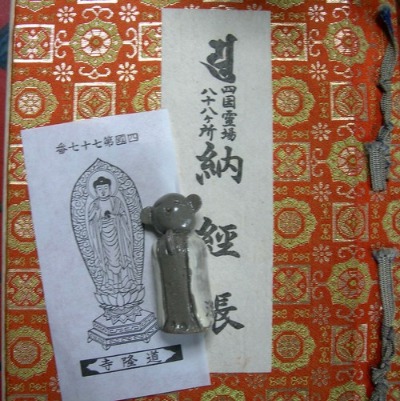 四国霊場
八十八ヶ所
納經帳
四國第七十七番
道隆寺